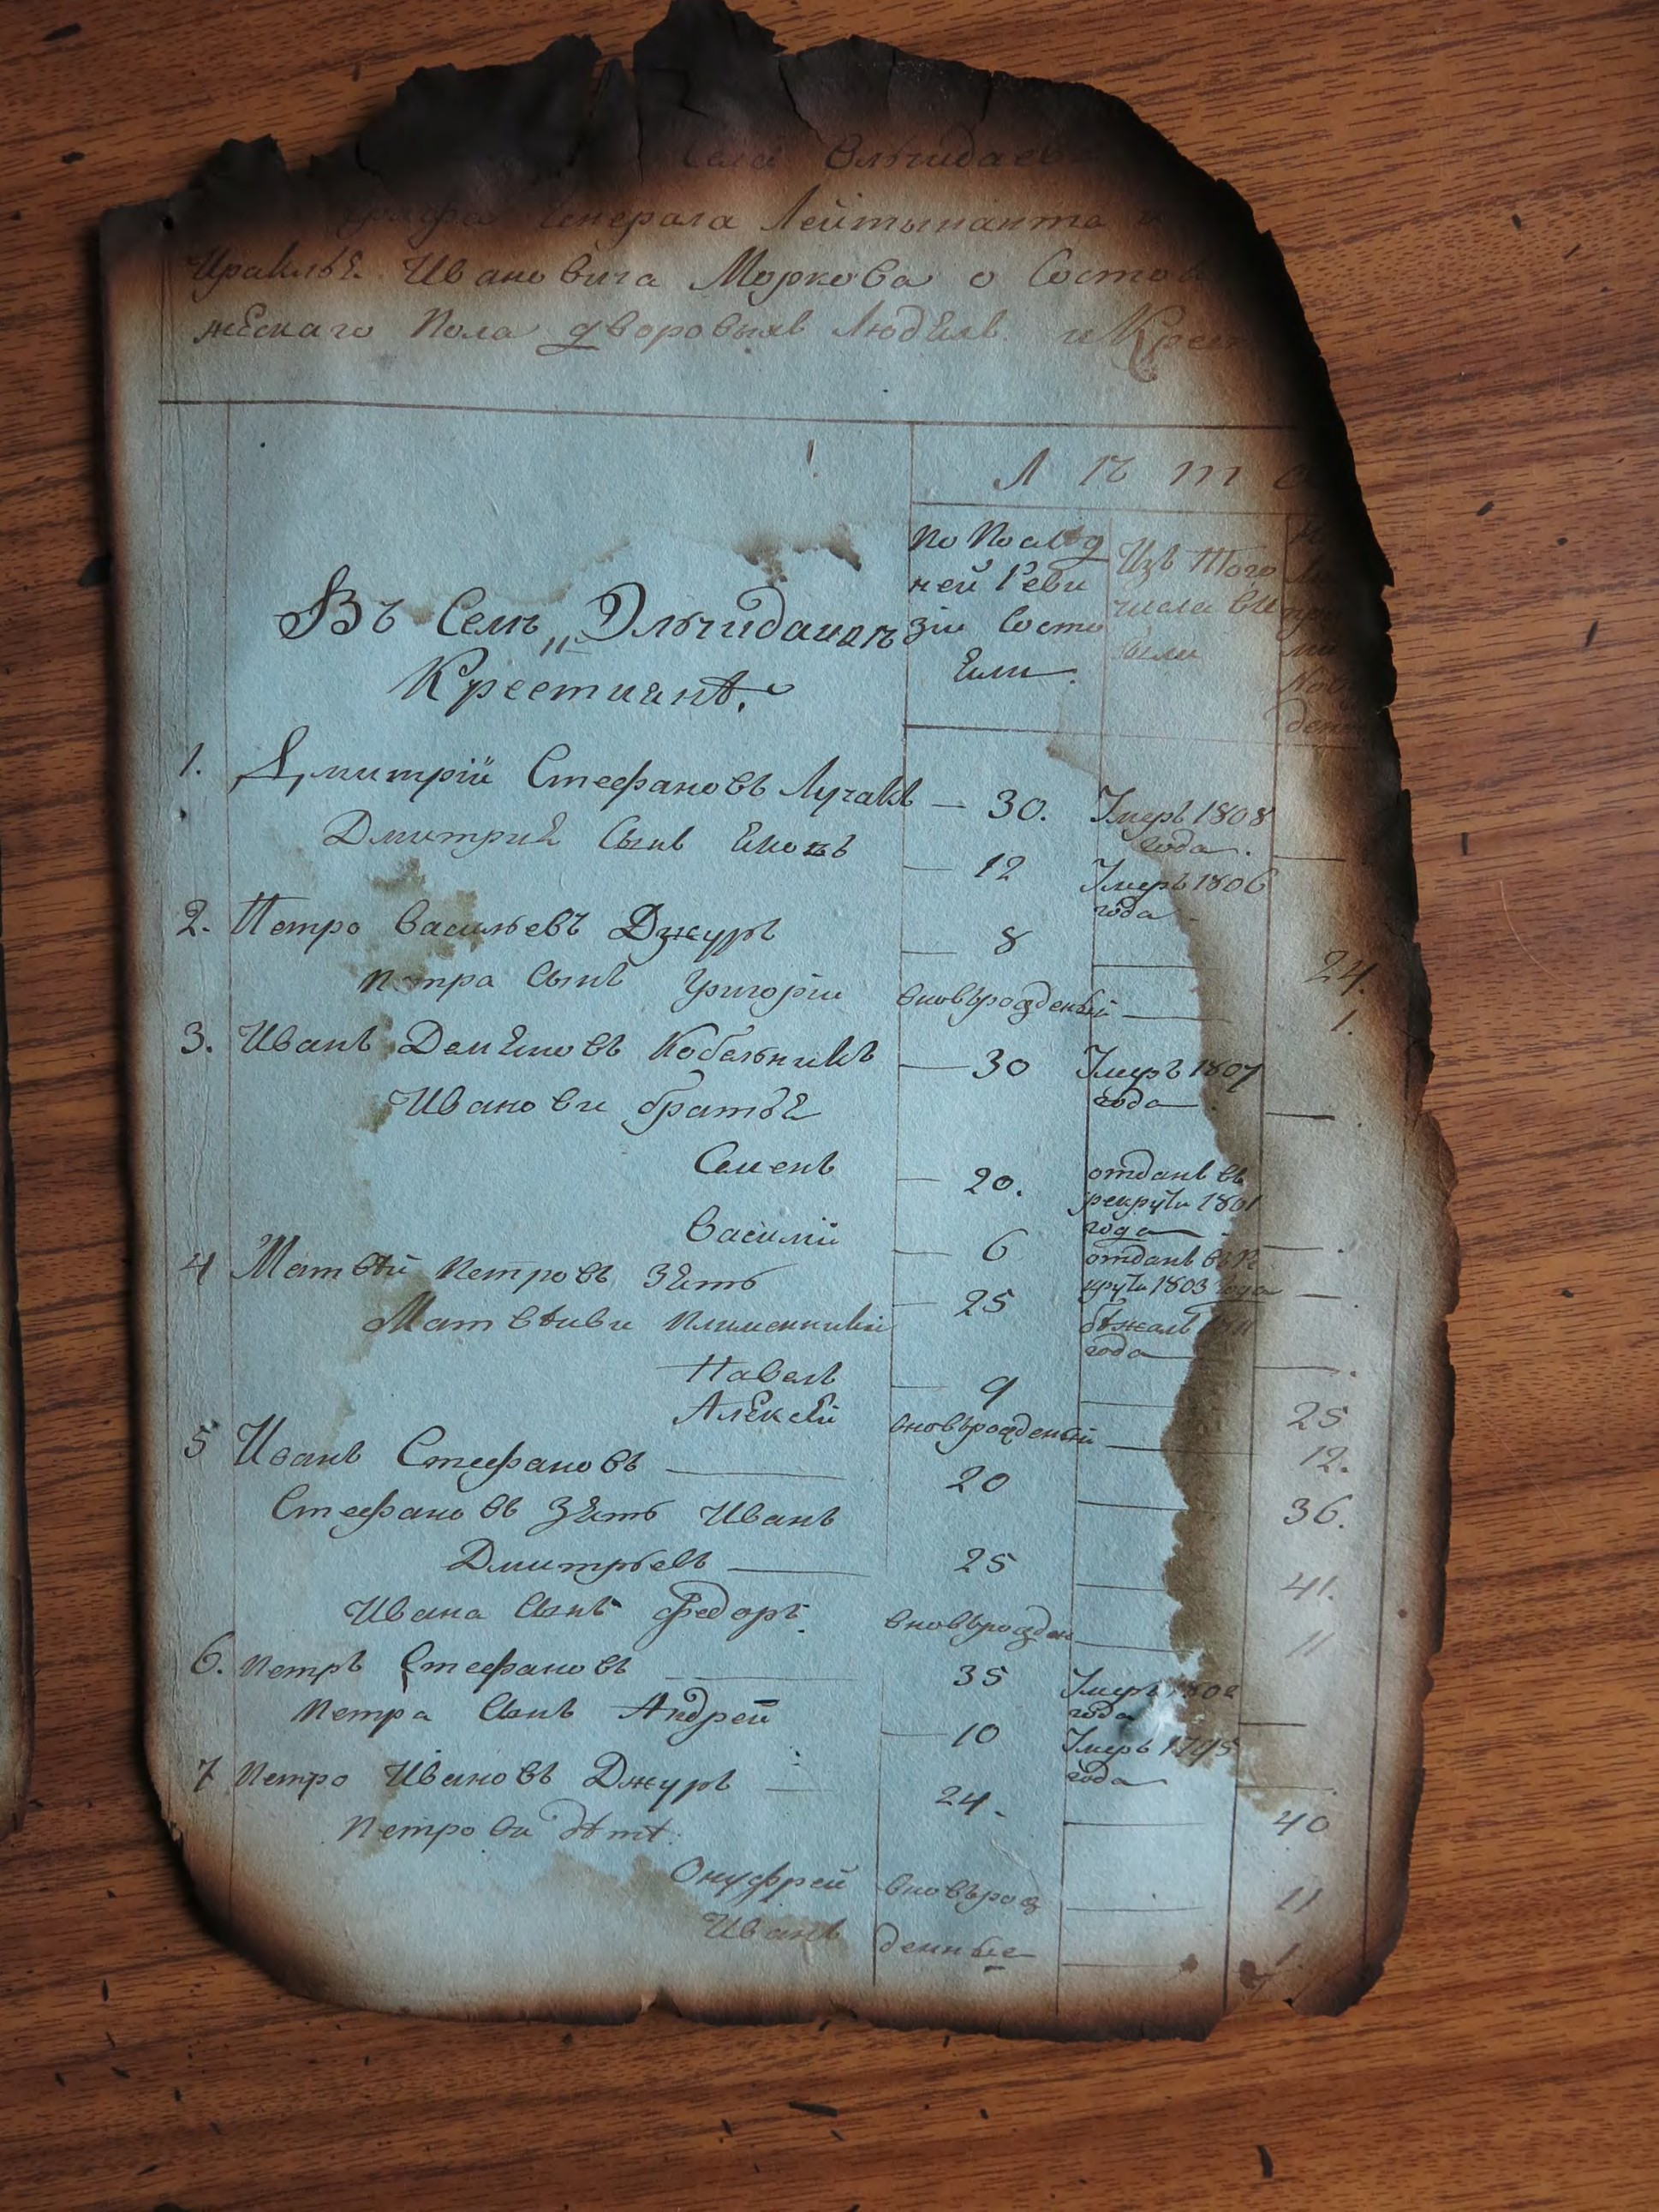 Села Ольчидаев
Графа Генерала Лейтынанта и
Ираклѣя Ивановича Моркова о Состоя
жескаго Пола дворовыхъ Людѣхъ и Крес
Лѣто
По Послѣд
ней Реви
зіи Состо
яли
Изъ того
числа вы
были
Въ Селѣ Ольчидаихъ
Крестиянъ.
1. Дмитрій Стефановъ Лучакъ — 30. Умеръ 1808
года. —
Дмитрия Сынъ — 12 Умеръ 1806
года
2. Петро Васильевъ Джуръ — 8 — 24.
Петра Сынъ Григорій вновърожденый — 1.
3. Иванъ Демяновъ Кобельникъ — 30 Умеръ 1807
года —
Иванови братья
Семенъ — 20. отданъ въ
рекруты 1801
года — .
Василій — 6 отданъ въ р
круты 1803 года — .
4 Матвѣй Петровъ Зять — 25 бѣжалъ
года — .
Матвѣиви Племенники
Павелъ — 9 — 25
Алексѣй вновърожденый — 12.
5 Иванъ Стефановъ — 20 — 36.
Стефановъ Зять Иванъ
Дмитрьевъ — 25 — 41.
Ивана Сынъ Федоръ. вновърожден — 11
6. Петръ Стефановъ — 35 Умеръ
года —
Петра Сынъ Андрей — 10 Умеръ
года — .
7 Петро Ивановъ Джуръ — 24. — 40
Петрови дѣти.
Онуфрей вноврож — 11
Иванъ денные — 1.